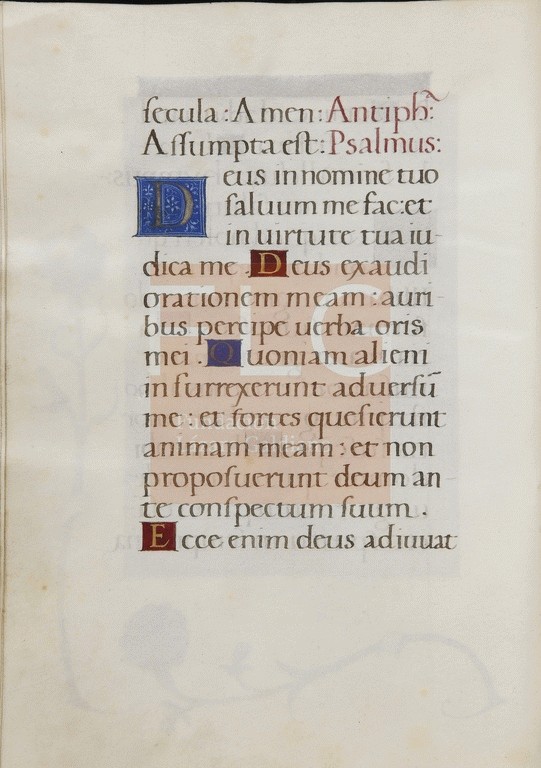 secula : Amen : Antiph̃:
Assumpta est : Psalmus:
Deus in nomine tuo
saluum me fac: et
in uirtute tua iu-
dica me . Deus exaudi
orationem meam : auri
bus percipe uerba oris
mei . Quoniam alieni
insurrexerunt aduersũ
me : et fortes quesierunt
animam meam : et non
proposuerunt deum an-
te conspectum suum .
Ecce enim deus adiuuat
FLC